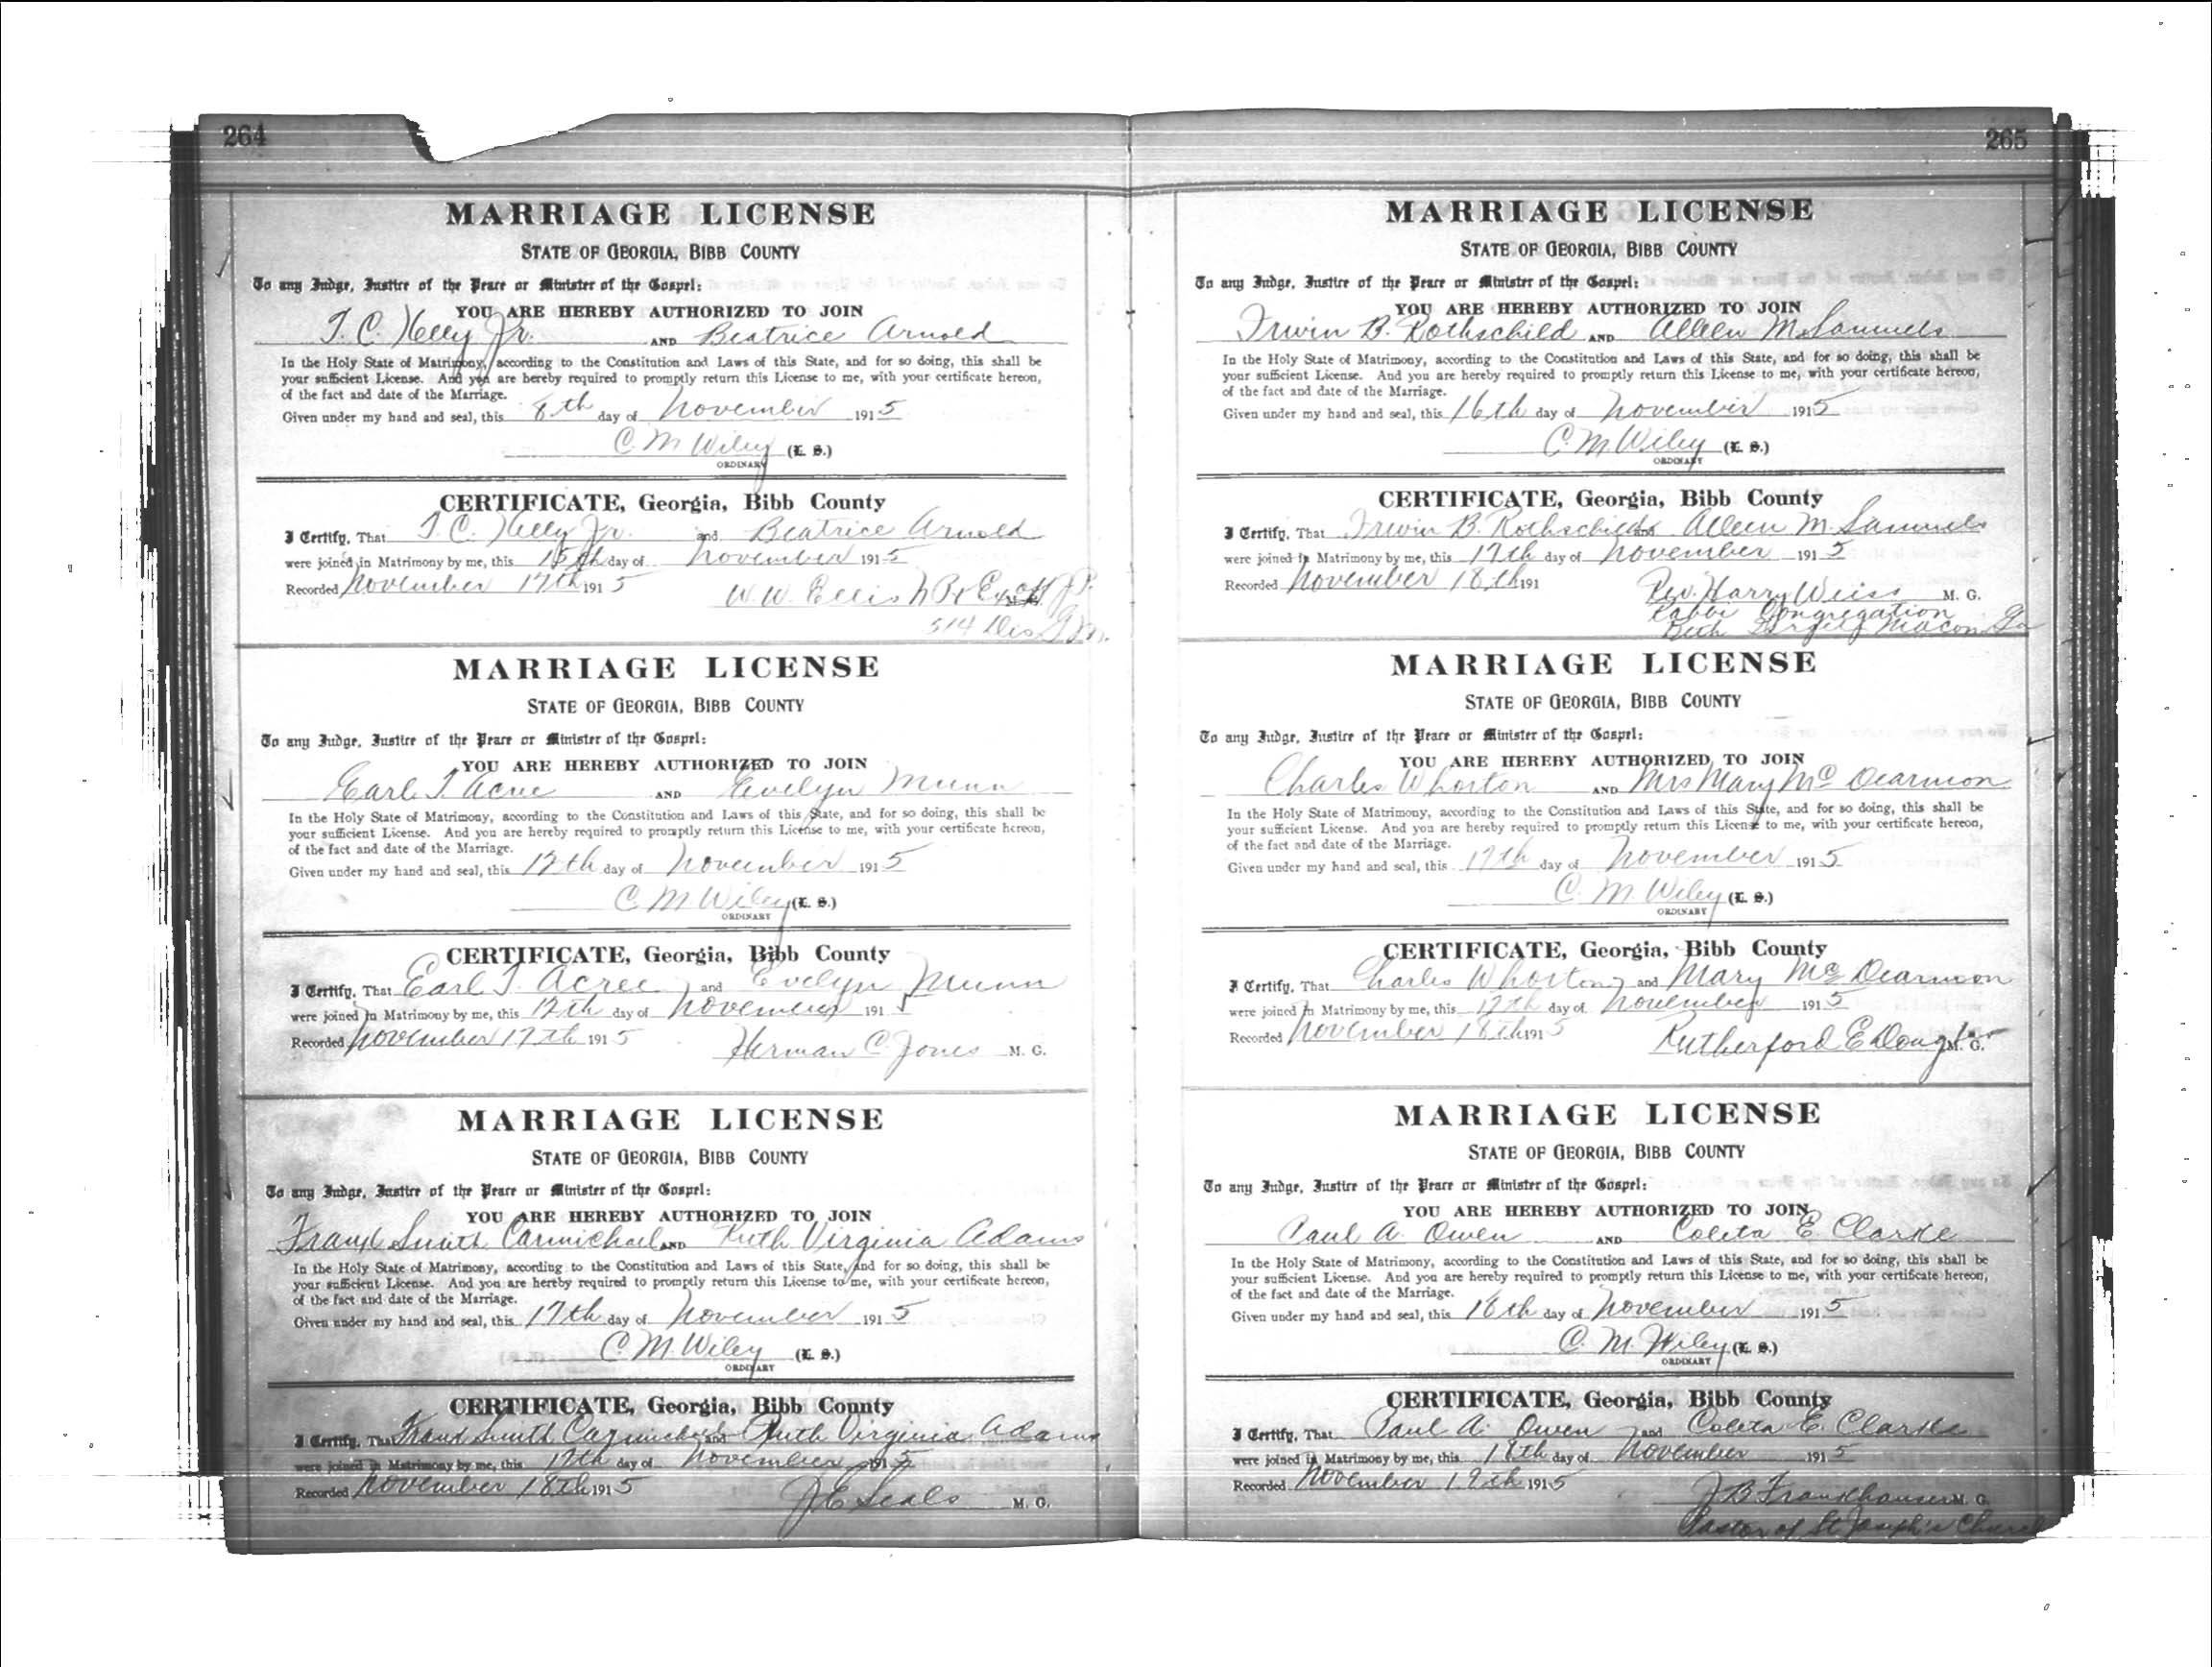 264
MARRIAGE LICENSE
STATE OF GEORGIA, BIBB COUNTY
To any Judge, Justice of the Peace or Minister of the Gospel:
YOU ARE HEREBY AUTHORIZED TO JOIN
T. C. Kelly Jr. AND Beatrice Arnold
In the Holy State of Matrimony, according to the Constitution and Laws of this State, and for so doing, this shall be
your sufficient License. And you are hereby required to promptly return this License to me, with your certificate hereon,
of the fact and date of the Marriage.
Given under my hand and seal, this 8th day of November 1915
C. M. Wiley (L. S.)
ORDINARY
CERTIFICATE, Georgia, Bibb County
I Certify, That T. C. Kelly Jr. and Beatrice Arnold
were joined in Matrimony by me, this 15th day of November 1915
Recorded November 17th 1915
W. W. Ellis N P & Ex off J. P.
514 Dis G. M.
MARRIAGE LICENSE
STATE OF GEORGIA, BIBB COUNTY
To any Judge, Justice of the Peace or Minister of the Gospel:
YOU ARE HEREBY AUTHORIZED TO JOIN
Earl T. Acree AND Evelyn Munn
In the Holy State of Matrimony, according to the Constitution and Laws of this State, and for so doing, this shall be
your sufficient License. And you are hereby required to promptly return this License to me, with your certificate hereon,
of the fact and date of the Marriage.
Given under my hand and seal, this 12th day of November 1915
C. M. Wiley (L. S.)
ORDINARY
CERTIFICATE, Georgia, Bibb County
I Certify, That Earl T. Acree and Evelyn Munn
were joined in Matrimony by me, this 12th day of November 1915
Recorded November 17th 1915
Herman C. Jones M. G.
MARRIAGE LICENSE
STATE OF GEORGIA, BIBB COUNTY
To any Judge, Justice of the Peace or Minister of the Gospel:
YOU ARE HEREBY AUTHORIZED TO JOIN
Frank Smith Carmichael AND Ruth Virginia Adams
In the Holy State of Matrimony, according to the Constitution and Laws of this State, and for so doing, this shall be
your sufficient License. And you are hereby required to promptly return this License to me, with your certificate hereon,
of the fact and date of the Marriage.
Given under my hand and seal, this 17th day of November 1915
C. M. Wiley (L. S.)
ORDINARY
CERTIFICATE, Georgia, Bibb County
I Certify, That Frank Smith Carmichael and Ruth Virginia Adams
were joined in Matrimony by me, this 17th day of November 1915
Recorded November 18th 1915
J E Seals M. G.
265
MARRIAGE LICENSE
STATE OF GEORGIA, BIBB COUNTY
To any Judge, Justice of the Peace or Minister of the Gospel:
YOU ARE HEREBY AUTHORIZED TO JOIN
Irwin B. Rothschild AND Alleen M. Samuels
In the Holy State of Matrimony, according to the Constitution and Laws of this State, and for so doing, this shall be
your sufficient License. And you are hereby required to promptly return this License to me, with your certificate hereon,
of the fact and date of the Marriage.
Given under my hand and seal, this 16th day of November 1915
C. M. Wiley (L. S.)
ORDINARY
CERTIFICATE, Georgia, Bibb County
I Certify, That Irwin B. Rothschild and Alleen M. Samuels
were joined in Matrimony by me, this 17th day of November 1915
Recorded November 18th 191
Rev. Harry Weiss M. G.
Rabbi Congregation
Beth Macon Ga
MARRIAGE LICENSE
STATE OF GEORGIA, BIBB COUNTY
To any Judge, Justice of the Peace or Minister of the Gospel:
YOU ARE HEREBY AUTHORIZED TO JOIN
Charles Whorton AND Mrs Mary Mc Dearmon
In the Holy State of Matrimony, according to the Constitution and Laws of this State, and for so doing, this shall be
your sufficient License. And you are hereby required to promptly return this License to me, with your certificate hereon,
of the fact and date of the Marriage.
Given under my hand and seal, this 17th day of November 1915
C. M. Wiley (L. S.)
ORDINARY
CERTIFICATE, Georgia, Bibb County
I Certify, That Charles Whorton and Mary Mc Dearmon
were joined in Matrimony by me, this 17th day of November 1915
Recorded November 18th 1915
Rutherford E Douglas M. G.
MARRIAGE LICENSE
STATE OF GEORGIA, BIBB COUNTY
To any Judge, Justice of the Peace or Minister of the Gospel:
YOU ARE HEREBY AUTHORIZED TO JOIN
Paul A. Owen AND Coleta E. Clarke
In the Holy State of Matrimony, according to the Constitution and Laws of this State, and for so doing, this shall be
your sufficient License. And you are hereby required to promptly return this License to me, with your certificate hereon,
of the fact and date of the Marriage.
Given under my hand and seal, this 18th day of November 1915
C. M. Wiley (L. S.)
ORDINARY
CERTIFICATE, Georgia, Bibb County
I Certify, That Paul A. Owen and Coleta E. Clarke
were joined in Matrimony by me, this 18th day of November 1915
Recorded November 19th 1915
J B Frankhauser M. G.
Pastor of St Joseph's Church